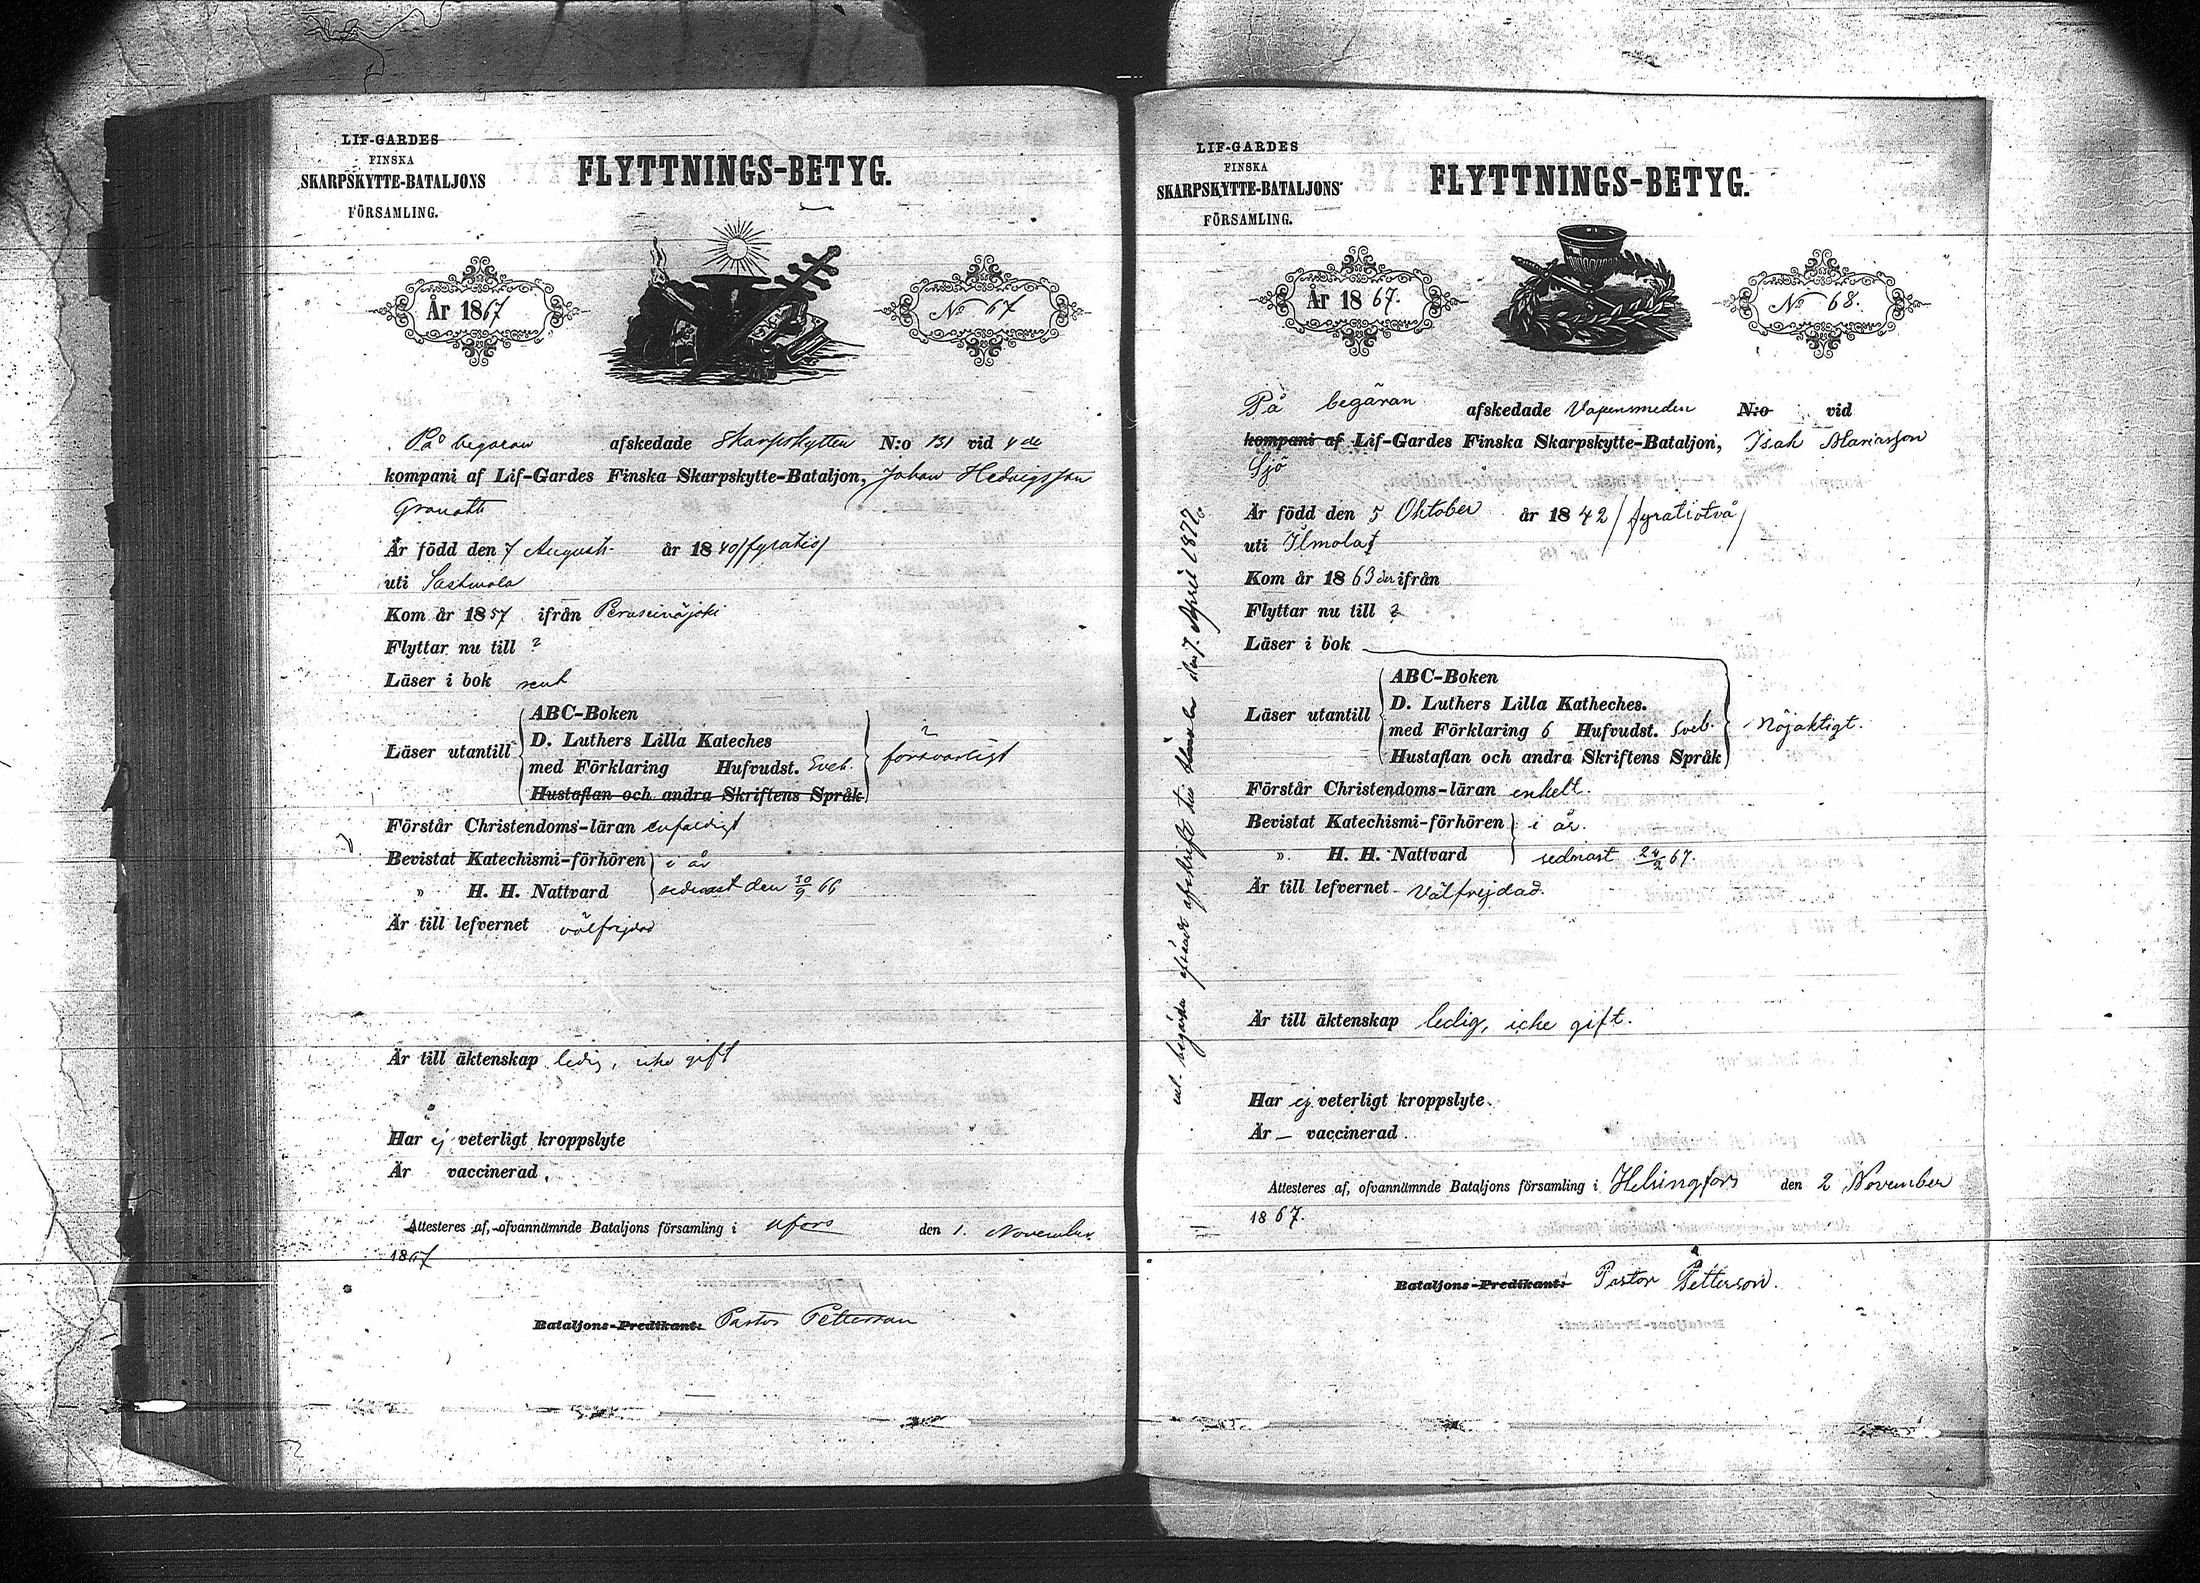 LIF-GARDES
FINSKA
SKARPSKYTTE-BATALJONS
FÖRSAMLING.
FLYTTNINGS-BETYG.
År 1867
No 67
På begäran afskedade Skarpskytten N:o 131 vid 4 de
kompani af Lif-Gardes Finska Skarpskytte-Bataljon, Johan Hedvigsson
Granatt
Är född den 7 Augusti år 1840 /fyratio/
uti Sastmola
Kom år 1857 ifrån Peräseinäjoki
Flyttar nu till ?
Läser i bok rent
Läser utantill
ABC-Boken
D. Luthers Lilla Kateches
med Förklaring Hufvudst. Sveb.
Hustaflan och andra Skriftens Språk
försvarligt
Förstår Christendoms-läran enfaldigt
Bevistat Katechismi-förhören i år
" H. H. Nattvard sednast den 30/9 66
Är till lefvernet välfrejdad
Är till äktenskap ledig, icke gift
Har ej veterligt kroppslyte
Är vaccinerad.
Attesteres af, ofvannämnde Bataljons församling i Hfors den 1. November
1867
Bataljons-Predikant: Pastor Petterson
LIF-GARDES
FINSKA
SKARPSKYTTE-BATALJONS
FÖRSAMLING.
FLYTTNINGS-BETYG.
År 1867.
No 68.
På begäran afskedade Vapensmeden N:o vid
kompani af Lif-Gardes Finska Skarpskytte-Bataljon, Isak Mariasson
Sjö
Är född den 5 Oktober år 1842 /fyratiotvå/
uti Ilmola
Kom år 1863 ifrån
Flyttar nu till ?
Läser i bok
Läser utantill
ABC-Boken
D. Luthers Lilla Katheches.
med Förklaring 6 Hufvudst. Sveb.
Hustaflan och andra Skriftens Språk
Nöjaktigt.
Förstår Christendoms-läran enkelt.
Bevistat Katechismi-förhören i år.
" H. H. Nattvard sednast 24/2 67.
Är till lefvernet Välfrejdad.
Är till äktenskap ledig, icke gift.
Har ej veterligt kroppslyte.
Är — vaccinerad.
Attesteres af, ofvannämnde Bataljons församling i Helsingfors den 2 November
1867.
Bataljons-Predikant: Pastor Petterson.
begäran afskrift den 7. April 1877